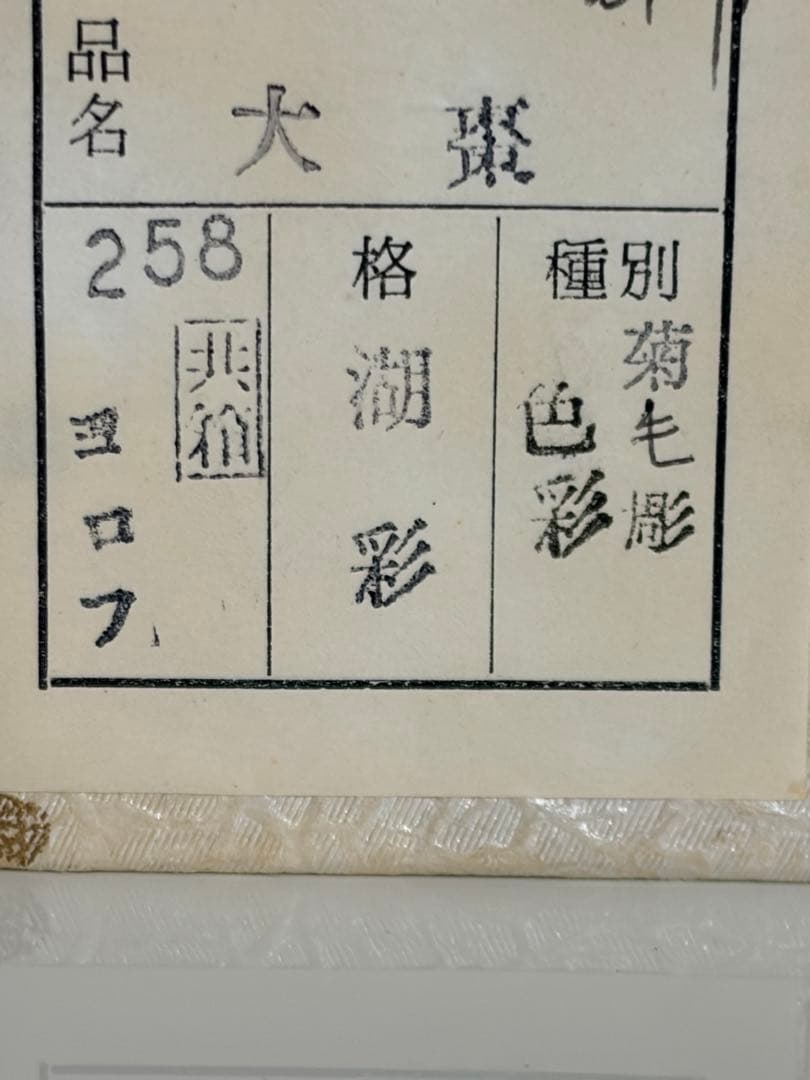 品名
大棗
種別
菊毛彫
色彩
格
湖彩
258
共箱
ヨロフ